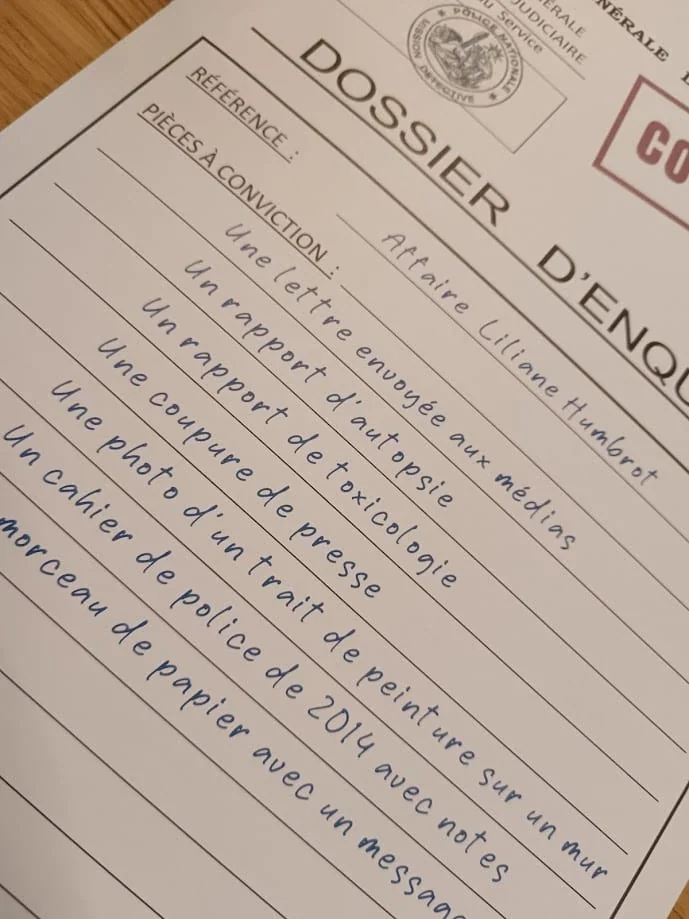 NÉRALE
ÉRALE
JUDICIAIRE
Service
POLICE NATIONALE
DETECTIVE
CO
DOSSIER D'ENQU
RÉFÉRENCE : Affaire Liliane Humbrot
PIÈCES À CONVICTION :
Une lettre envoyée aux médias
Un rapport d'autopsie
Un rapport de toxicologie
Une coupure de presse
Une photo d'un trait de peinture sur un mur
Un cahier de police de 2014 avec notes
morceau de papier avec un messag